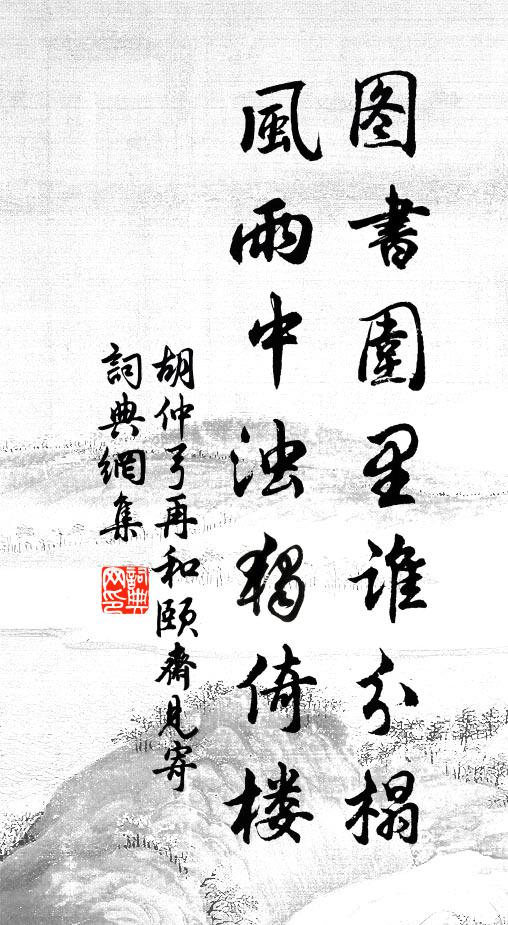 图書圍里誰分榻
風雨中浊獨倚楼
胡仲弓再和颐齋見寄
詞典網集
詞典网印